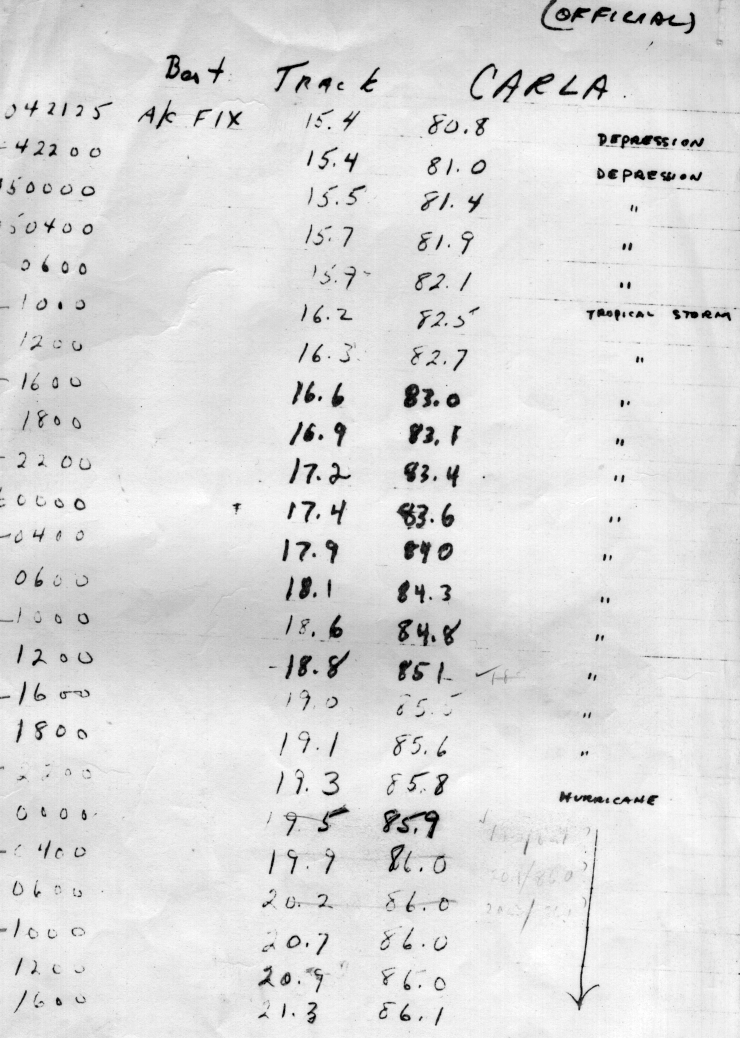 (OFFICIAL)
Best Track CARLA
042125 A/c FIX 15.4 80.8 DEPRESSION
-42200 15.4 81.0 DEPRESSION
150000 15.5 81.4 "
50400 15.7 81.9 "
0600 15.9 82.1 "
-1000 16.2 82.5 TROPICAL STORM
1200 16.3 82.7 "
-1600 16.6 83.0 "
1800 16.9 83.1 "
-2200 17.2 83.4 "
60000 17.4 83.6 "
-0400 17.9 840 "
0600 18.1 84.3 "
-1000 18.6 84.8 "
1200 -18.8 851 "
-1600 19.0 85.5 "
1800 19.1 85.6 "
-2200 19.3 85.8 HURRICANE
0000 19.5 85.9
-0400 19.9 86.0
0600 20.2 86.0
-1000 20.7 86.0
1200 20.9 86.0
1600 21.3 86.1